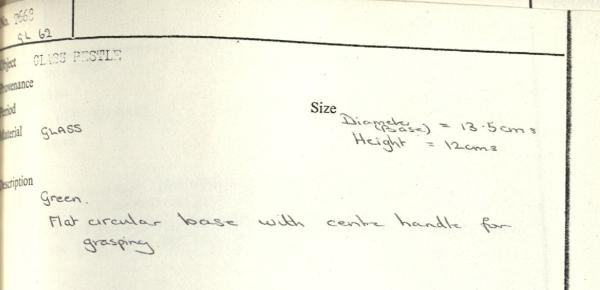 No. 2668
GL 62
Object GLASS PESTLE
Provenance
Period
Size
Diameter (Base) = 13.5cms
Material GLASS
Height = 12cms
Description
Green.
Flat circular base with centre handle for
grasping